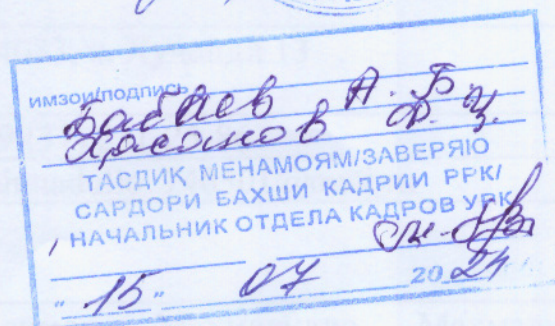 ИМЗОИ/ПОДПИСЬ
Бабаев А. Б.
Хасанов Ф. Ц.
ТАСДИҚ МЕНАМОЯМ/ЗАВЕРЯЮ
САРДОРИ БАХШИ КАДРИИ РРК/
НАЧАЛЬНИК ОТДЕЛА КАДРОВ УРК
"15" 07 2024